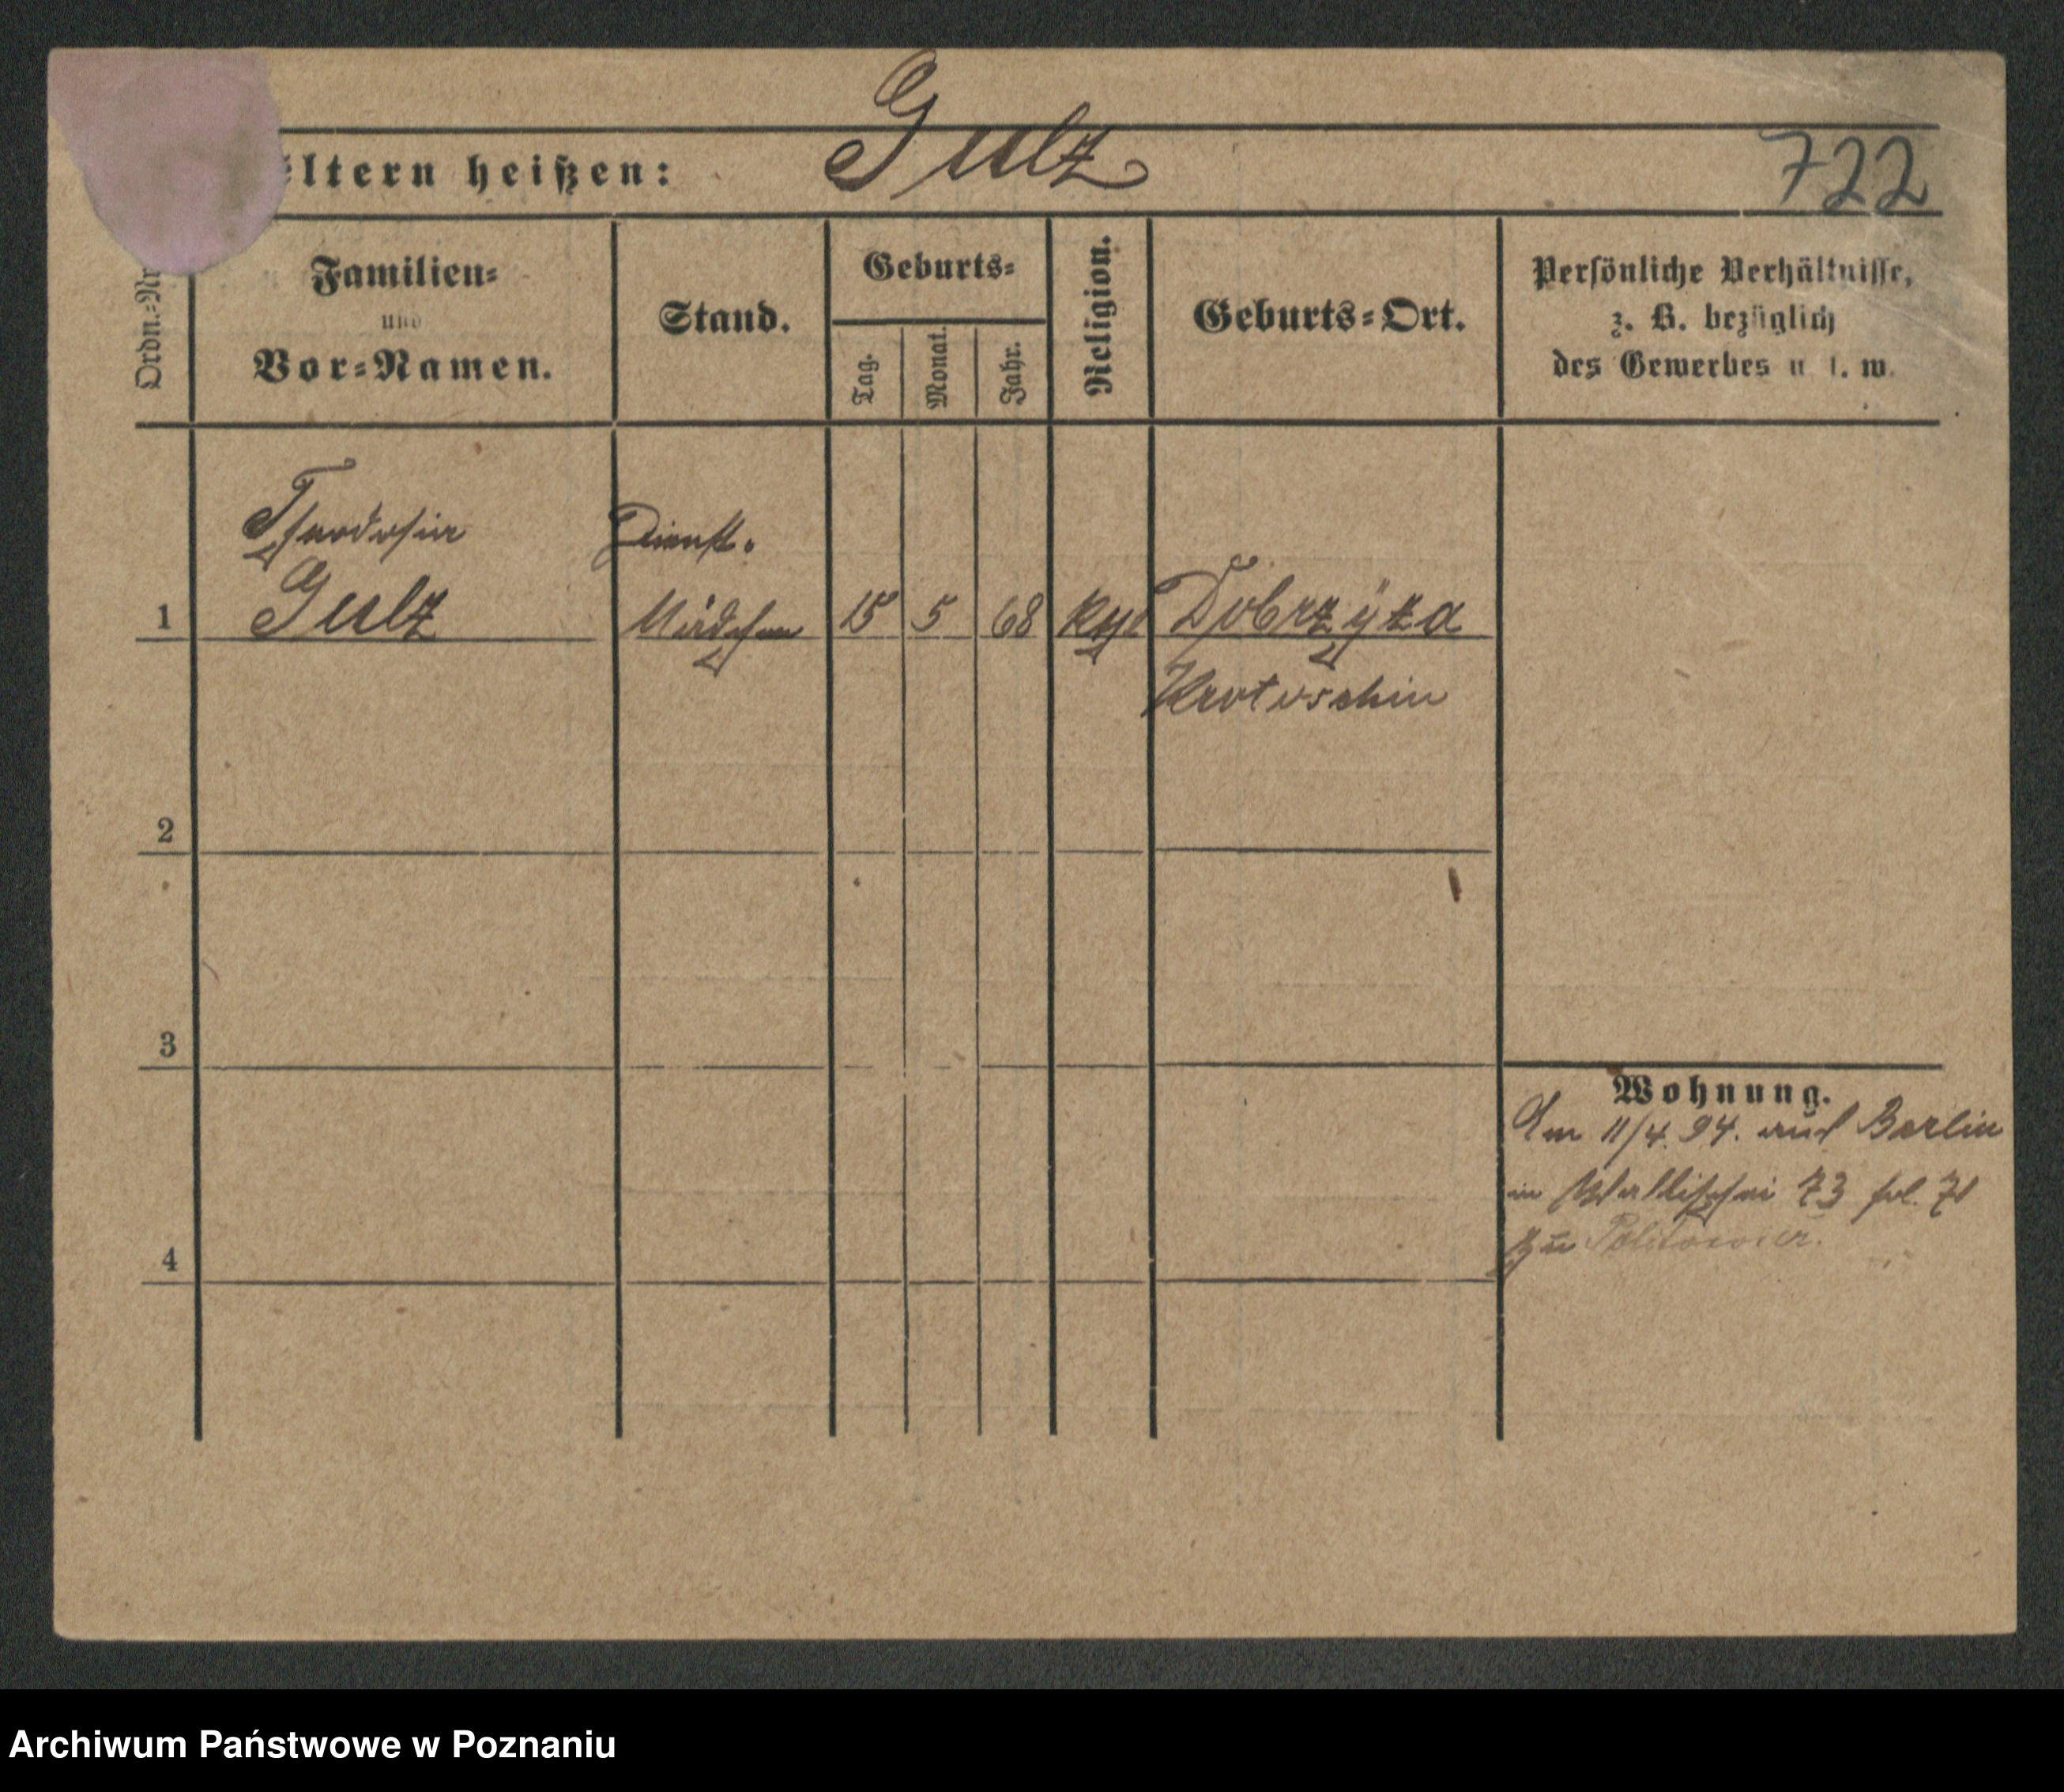 eltern heißen: Gulz 722
Ordn.-Nr
Familien-
und
Vor-Namen.
Stand.
Geburts-
Tag.
Monat.
Jahr.
Religion.
Geburts-Ort.
Persönliche Verhältnisse,
z. B. bezüglich
des Gewerbes u. s. w.
Theodosia
Dienst.
1 Gulz Mädchen 15 5 68 Dobrzyza
Krotoschin
2
3
4
Wohnung.
Am 11/4. 94. aus Berlin
in Wallischei 73 fol. 71
zu
Archiwum Państwowe w Poznaniu